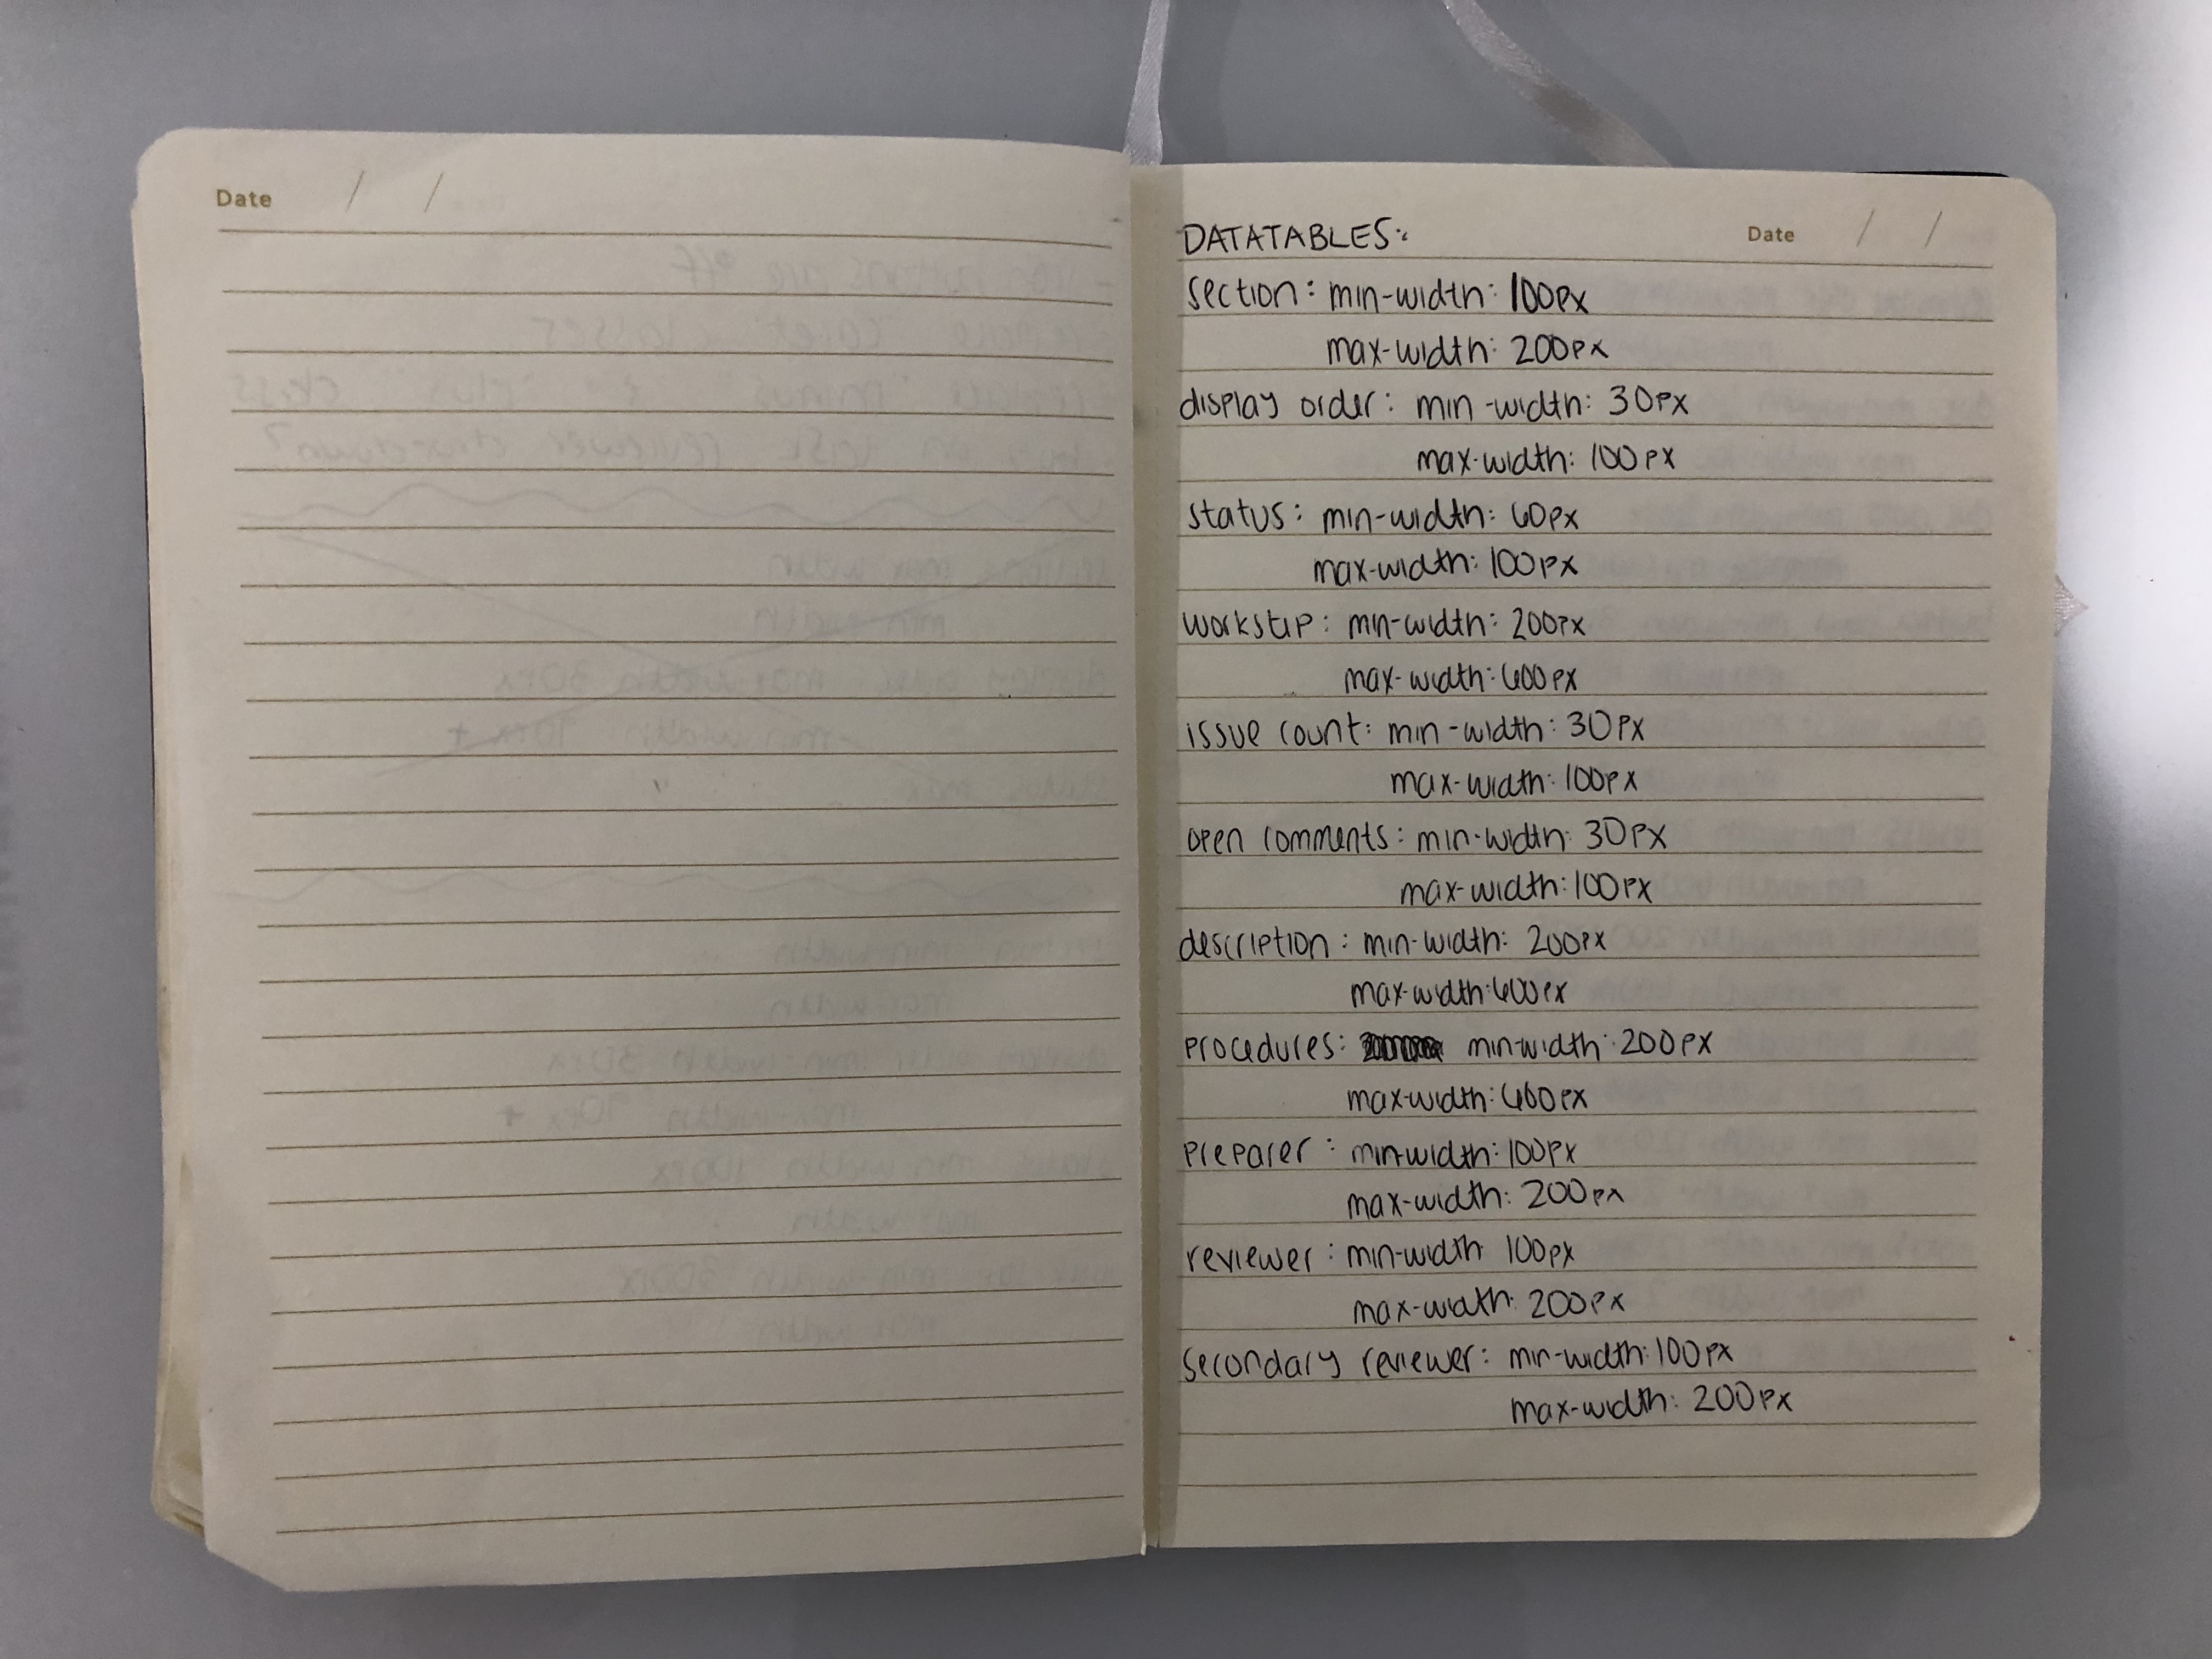 Date / /
DATATABLES:
Date / /
section: min-width: 100px
max-width: 200px
display order: min-width: 30px
max-width: 100px
status: min-width: 60px
max-width: 100px
workstep: min-width: 200px
max-width: 600px
issue count: min-width: 30px
max-width: 100px
open comments: min-width: 30px
max-width: 100px
description: min-width: 200px
max-width: 600px
procedures: min-width: 200px
max-width: 600px
preparer: min-width: 100px
max-width: 200px
reviewer: min-width 100px
max-width: 200px
secondary reviewer: min-width: 100px
max-width: 200px